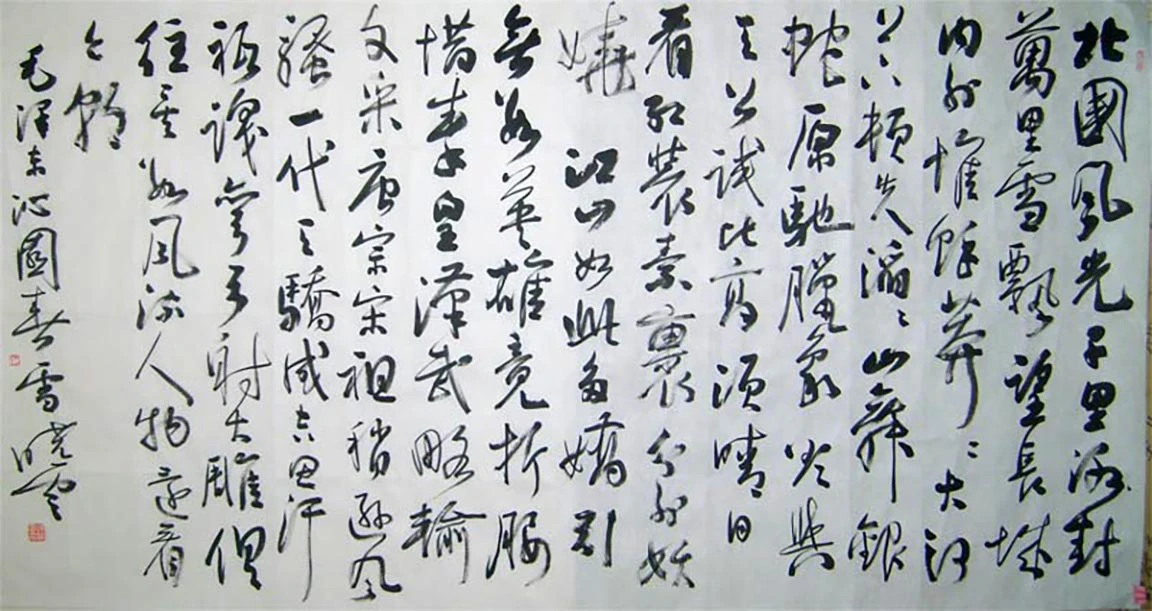 北國風光千里冰封
萬里雪飄望長城
内外惟餘莽〻大河
上下頓失滔〻山舞銀
蛇原馳臘象欲與
天公試比高須晴日
看紅裝素裹分外妖
嬈 江山如此多嬌引
無數英雄竟折腰
惜秦皇漢武略輸
文采唐宗宋祖稍遜風
騷一代天驕成吉思汗
祗識彎弓射大雕俱
往矣數風流人物還看
今朝
毛澤东沁園春雪 曉雲